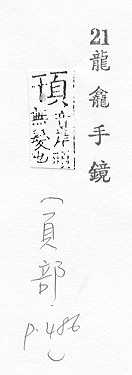 21龍龕手鏡
無髮也
(頁部.
p.486)